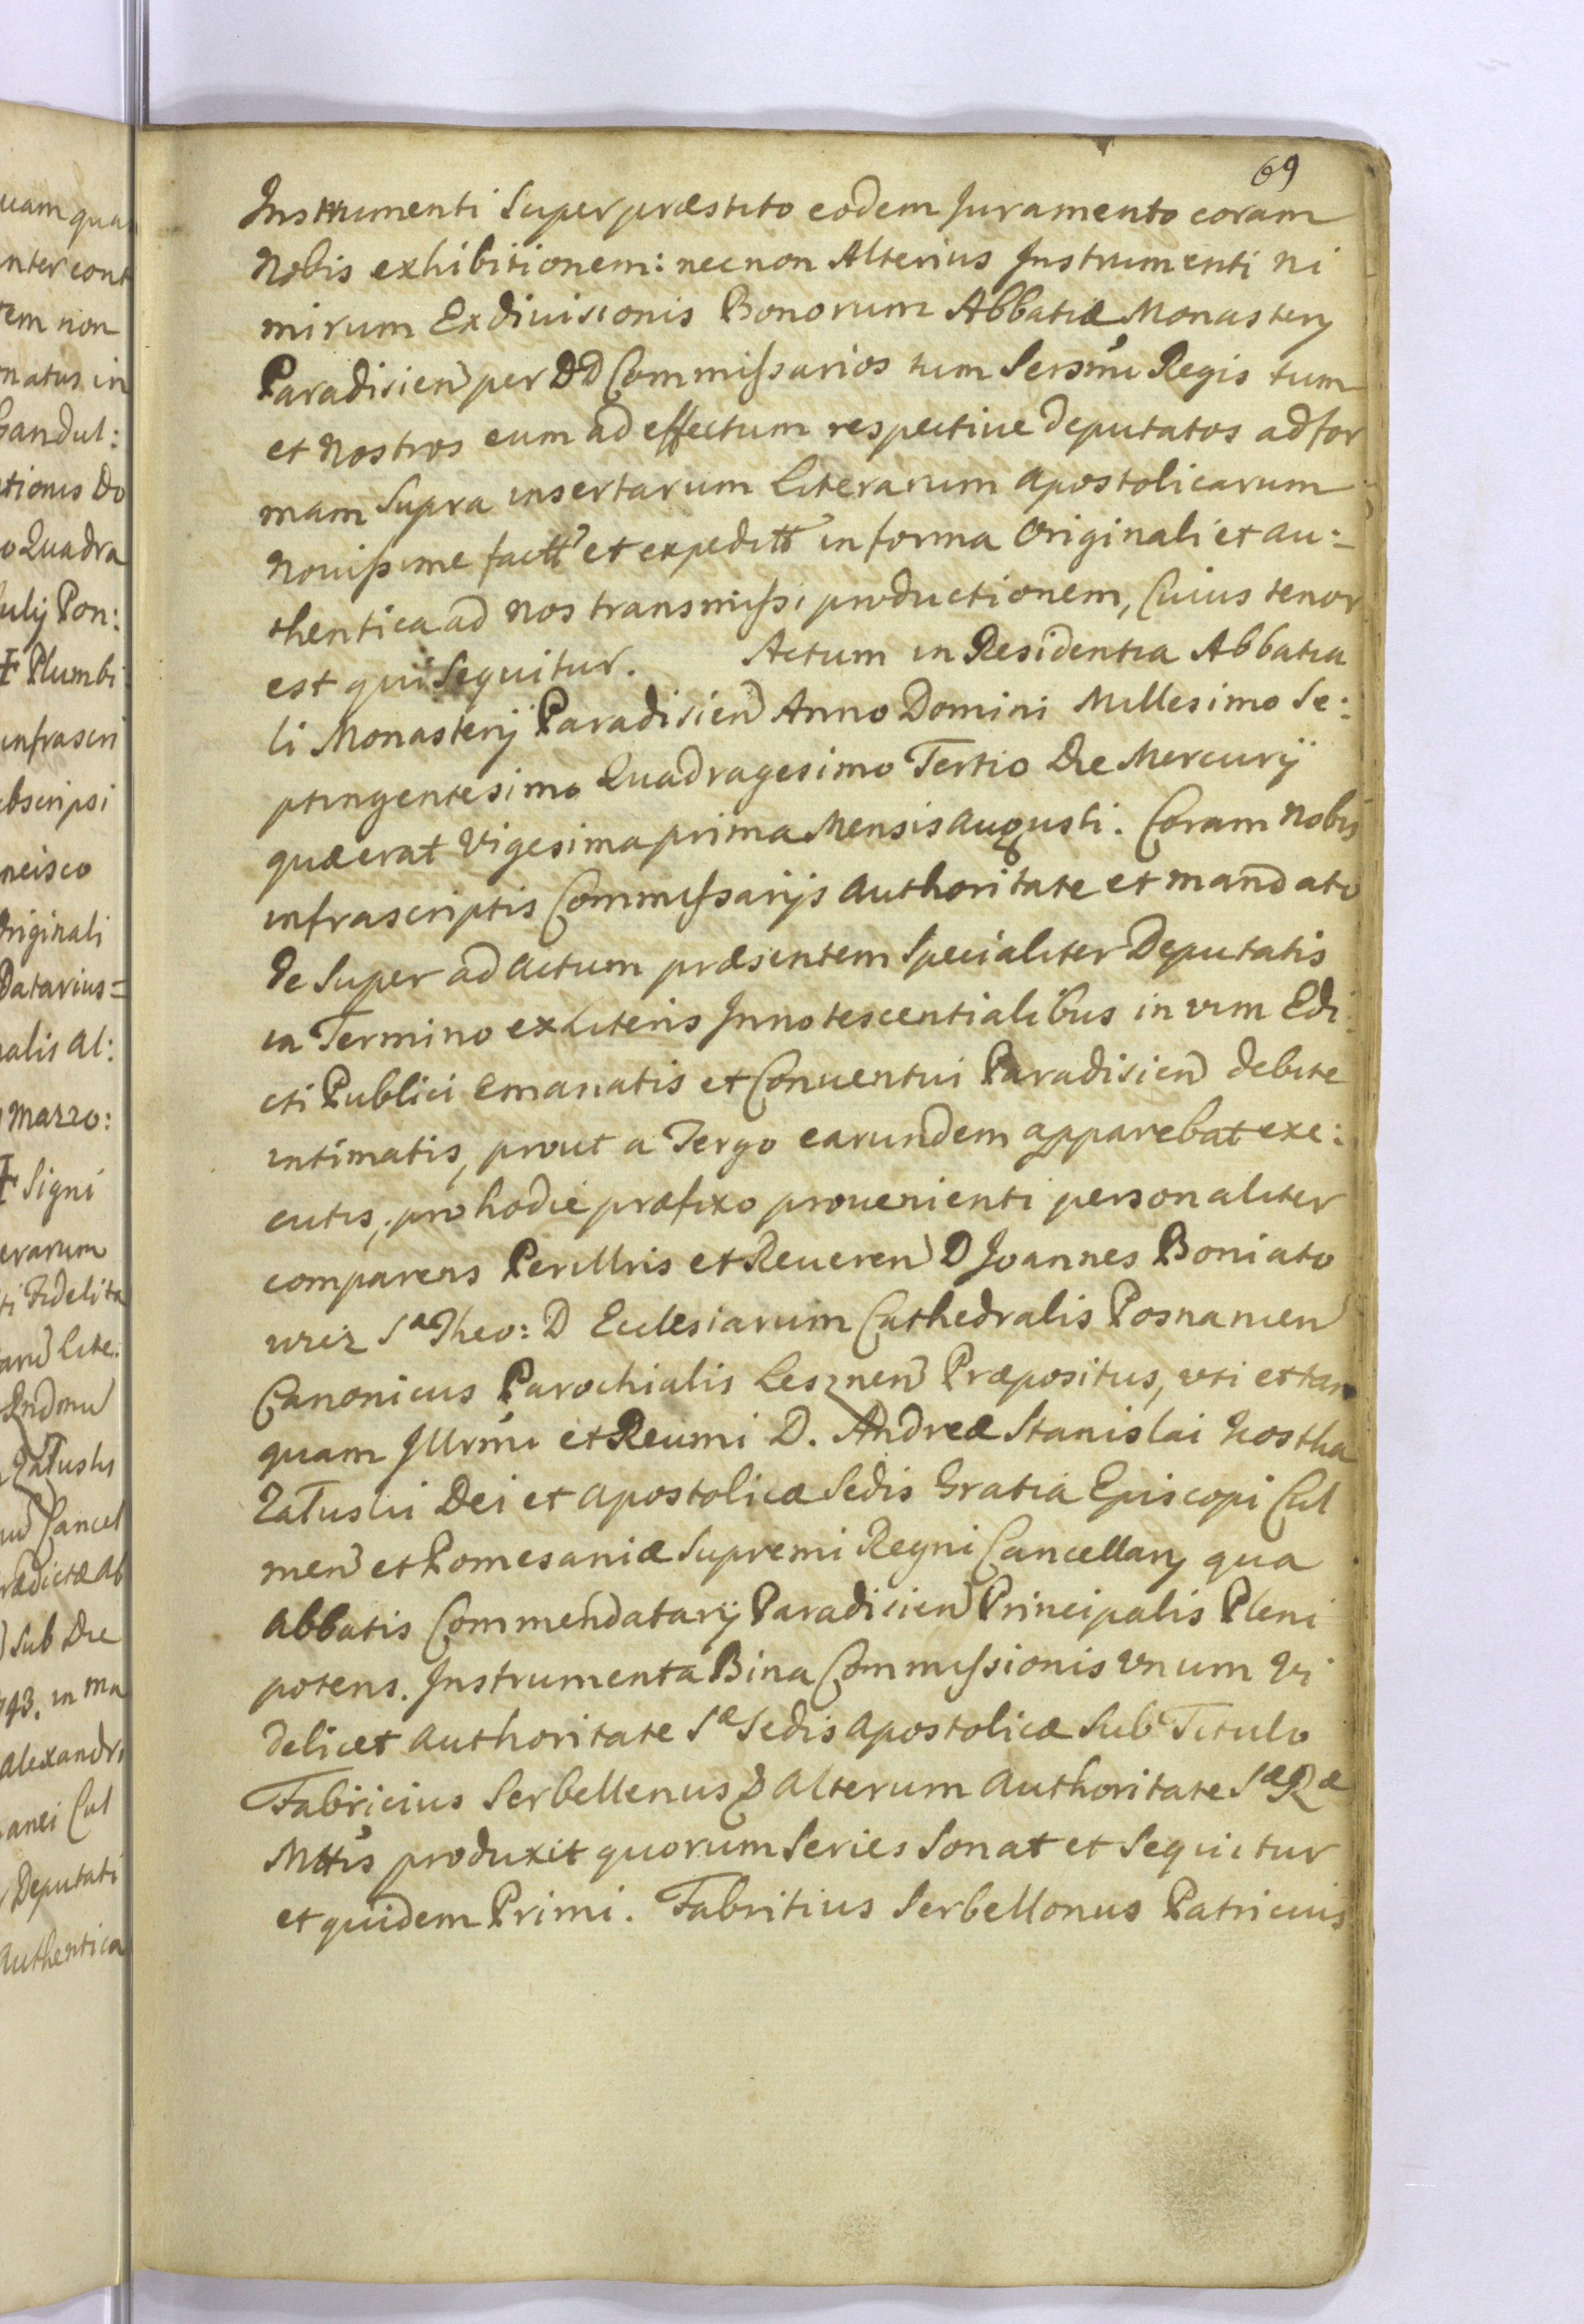 69
Instrumenti Super præstito eodem Juramento coram
Nobis exhibitionem: necnon Alterius Instrumenti ni
mirum Exdiuisionis Bonorum Abbatiæ Monastery
Paradisien per DD Commissarios tum Sersmi Regis tum
et Nostros eum ad effectum respectiue deputatos ad for
mam Supra insertarum Literarum Apostolicarum
Nouissime factt et expeditt in forma Originali et au:
thentica ad Nos transmissi productionem, Cuius tenor
est qui Sequitur. Actum in Residentia Abbatia
li Monasterÿ Paradisien Anno Domini Millesimo Se:
ptingentesimo Quadragesimo Tertio Die Mercurÿ
quæ erat Vigesima prima Mensis Augusti. Coram Nobis
infrascriptis Commissarÿs Authoritate et mandato
de Super ad Actum præsentem Specialiter Deputatis
in Termino ex Literis Innotescentialibus in vim Edi
cti Publici emanatis et Conuentui Paradisien debite
intimatis, prout a Tergo earundem apparebat exe:
cutis, pro hodie præfixo prouenienti personaliter
comparens Perillris et Reueren D Joannes Boniato
wicz Sa Theo: D Ecclesiarum Cathedralis Posnanien
Canonicus Parochialis Lesznen Præpositus, uti et tan
quam Illrmi et Reumi D. Andreæ Stanislai Kostka
Załuski Dei et Apostolicæ Sedis Gratia Episcopi Cul
men et Pomesaniæ Supremi Regni Cancellary qua
Abbatis Commendatarÿ Paradisien Principalis Pleni
potens. Instrumenta Bina Commissionis Vnum Vi
delicet Authoritate Sæ Sedis Apostolicæ Sub Titulo
Fabricius Serbellenus & Alterum Authoritate Sæ Ræ
Mttis produxit quorum Series Sonat et Sequitur
et quidem Primi. Fabritius Serbellonus Patricius